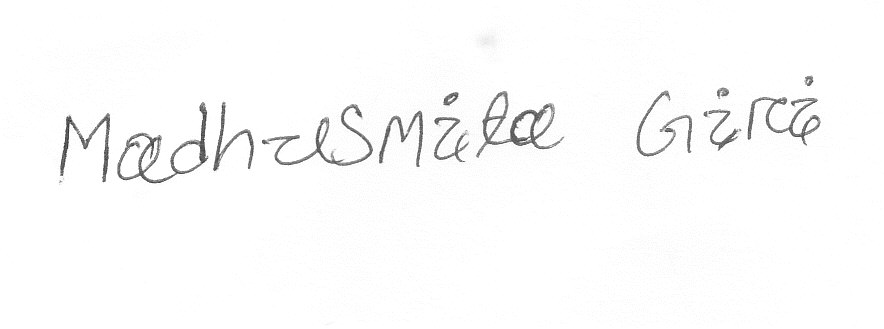 Madhusmita Giri